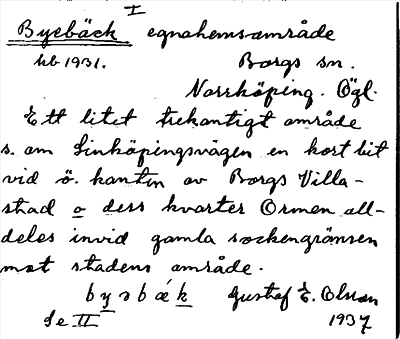 I
Byebäck egnahemsområde
kb 1931. Borgs sn.
Norrköping. Ögl.
Ett litet trekantigt område
s. om Linköpingsvägen en kort bit
vid ö. kanten av Borgs Villa-
stad o dess kvarter Ormen all-
deles invid gamla sockengränsen
mot stadens område.
Gustaf E. Olsson
Se II 1937